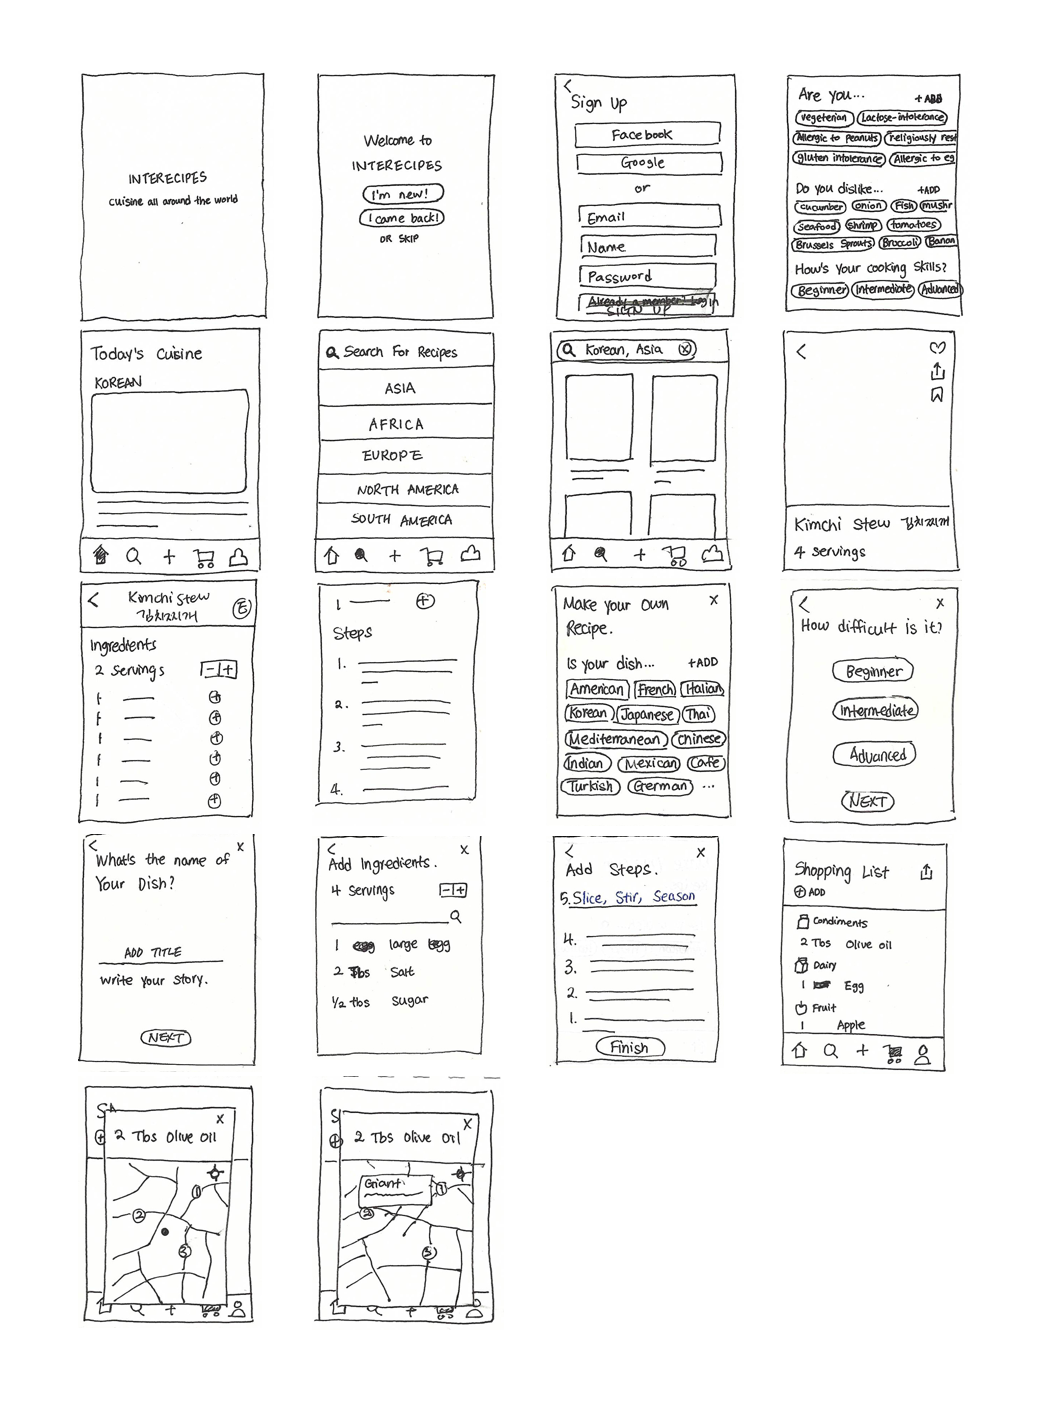 INTERECIPES
cuisine all around the world
Welcome to
INTERECIPES
I'm new!
I came back!
OR SKIP
Sign Up
Facebook
Google
or
Email
Name
Password
Already a member? Log in
SIGN UP
Are you...
+ ADD
vegeterian
Lactose-intolerance
Allergic to Peanuts
religiously rest
gluten intolerance
Allergic to eg
Do you dislike...
+ADD
cucumber
onion
Fish
mushr
Seafood
shrimp
tomatoes
Brussels Sprouts
Broccoli
Banan
How's your cooking Skills?
Beginner
Intermediate
Advanced
Today's Cuisine
KOREAN
Search For Recipes
ASIA
AFRICA
EUROPE
NORTH AMERICA
SOUTH AMERICA
Korean, Asia
Kimchi Stew 김치찌개
4 servings
Kimchi Stew
김치찌개
E
Ingredients
2 Servings
- +
1
1
1
1
1
1
1
Steps
1.
2.
3.
4.
Make your own
Recipe.
X
Is your dish...
+ADD
American
French
Italian
Korean
Japanese
Thai
Mediterranean
Chinese
Indian
Mexican
Cafe
Turkish
German
...
X
How difficult is it?
Beginner
Intermediate
Advanced
NEXT
X
What's the name of
Your Dish?
ADD TITLE
Write your story.
NEXT
X
Add Ingredients.
4 servings
- +
1 large Egg
2 Tbs Salt
1/2 tbs Sugar
X
Add Steps.
5. Slice, Stir, Season
4.
3.
2.
1.
Finish
Shopping List
+ ADD
Condiments
2 Tbs Olive oil
Dairy
1 Egg
Fruit
1 Apple
X
2 Tbs Olive Oil
1
2
3
X
2 Tbs Olive Oil
Giant
1
2
3